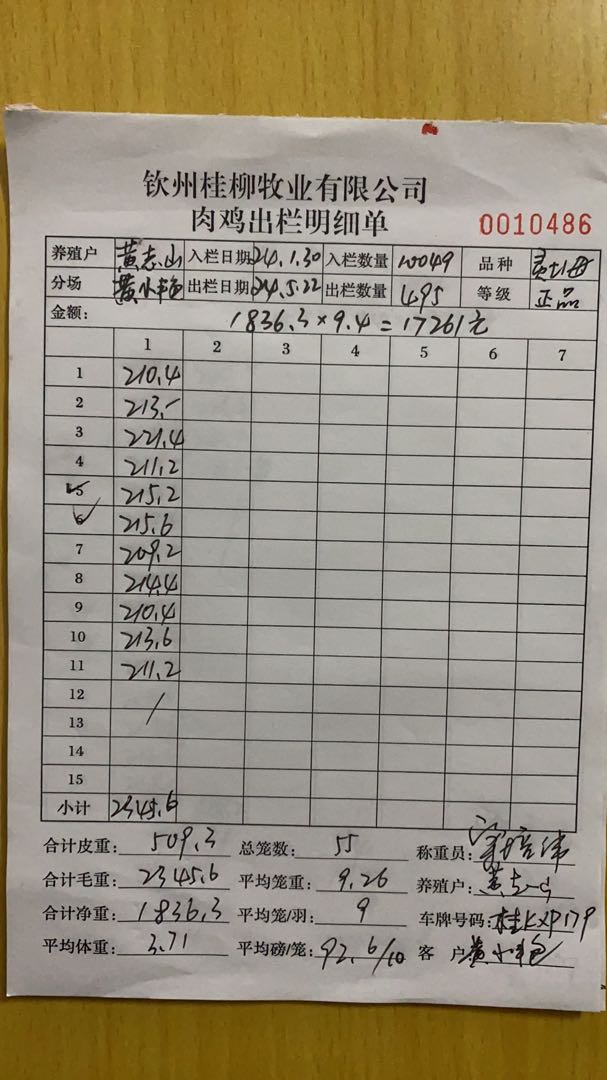 钦州桂柳牧业有限公司
肉鸡出栏明细单
0010486
养殖户 黄志山 入栏日期 24.1.30 入栏数量 10049 品种
分场 黄小艳 出栏日期 24.5.22 出栏数量 495 等级 正品
金额: 1836.3×9.4=17261元
1 2 3 4 5 6 7
1 210.4
2 213.-
3 221.4
4 211.2
5 215.2
6 215.6
7 209.2
8 214.4
9 210.4
10 213.6
11 211.2
12
13
14
15
小计 2345.6
合计皮重: 509.3 总笼数: 55 称重员:
合计毛重: 2345.6 平均笼重: 9.26 养殖户: 黄志山
合计净重: 1836.3 平均笼/羽: 9 车牌号码: 桂KXP179
平均体重: 3.71 平均磅/笼: 92.6/10 客户 黄小艳